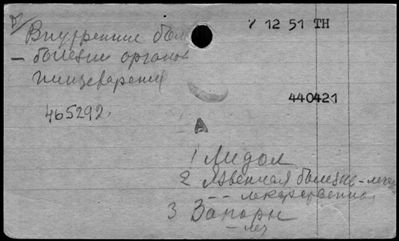 Внутренние бол
7 12 51 TH
– болезни органов
пищеварения
440421
465292.
А
1 Лидол
2 Язвенная болезнь – лек
– – лекарственная
3 Запоры
– лез